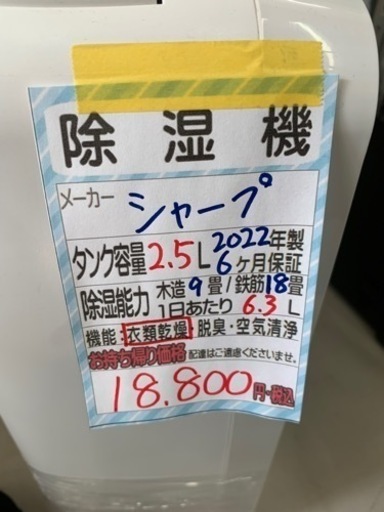 除湿機
メーカー シャープ
タンク容量 2.5L 2022年製
6ヶ月保証
除湿能力 木造9畳/鉄筋18畳
1日あたり 6.3L
機能:衣類乾燥・脱臭・空気清浄
お持ち帰り価格 配達はご遠慮くださいませ。
18.800円・税込